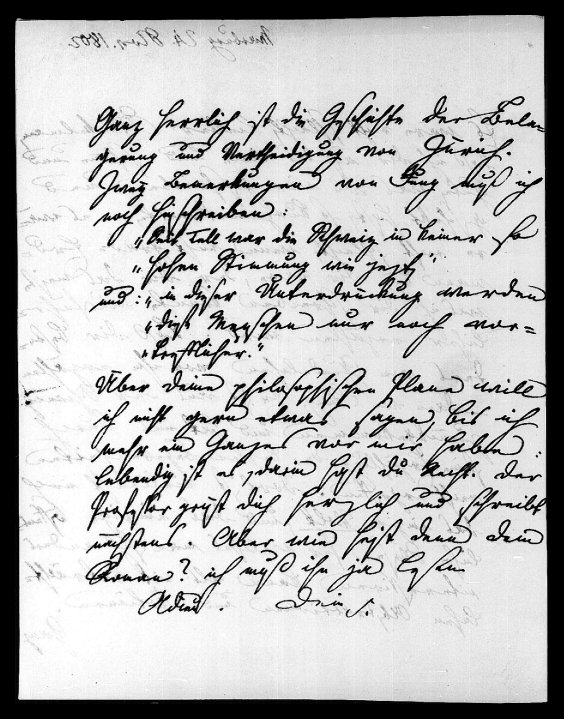 Ganz herrlich ist die Geschichte der Bela-
gerung und Vertheidigung von Zürich.
Zwey Bemerkungen von Jung muß ich
noch hinschreiben:
„Seit Tell war die Schweiz in keiner so
„hohen Stimmung wie jezt“
und: „in dieser Unterdruckung werden
„diese Menschen nur noch vor-
„trefflicher.“
Über deine philosophischen Plane will
ich nicht gern etwas sagen, bis ich
mehr ein Ganzes vor mir habe
lebendig ist es, darin hast du Recht. Der
Professor grüst dich herzlich und schreibt
nächstens. Aber wie heist denn dein
Roman? ich muß ihn ja lesen
Adieu. Dein S.